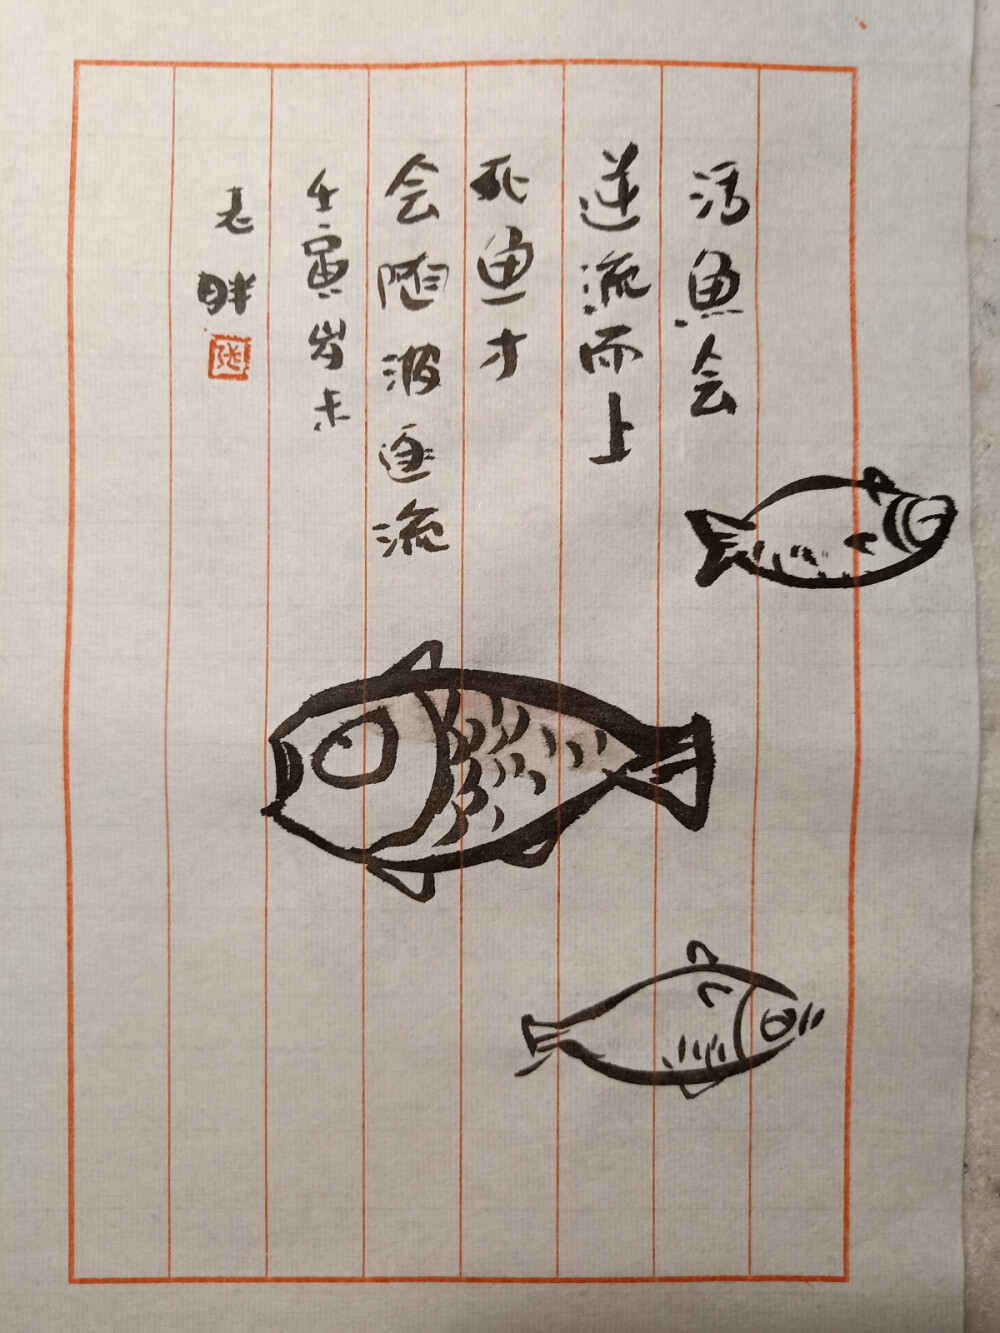 活鱼会
逆流而上
死鱼才
会随波逐流
壬寅岁末
老胖
张